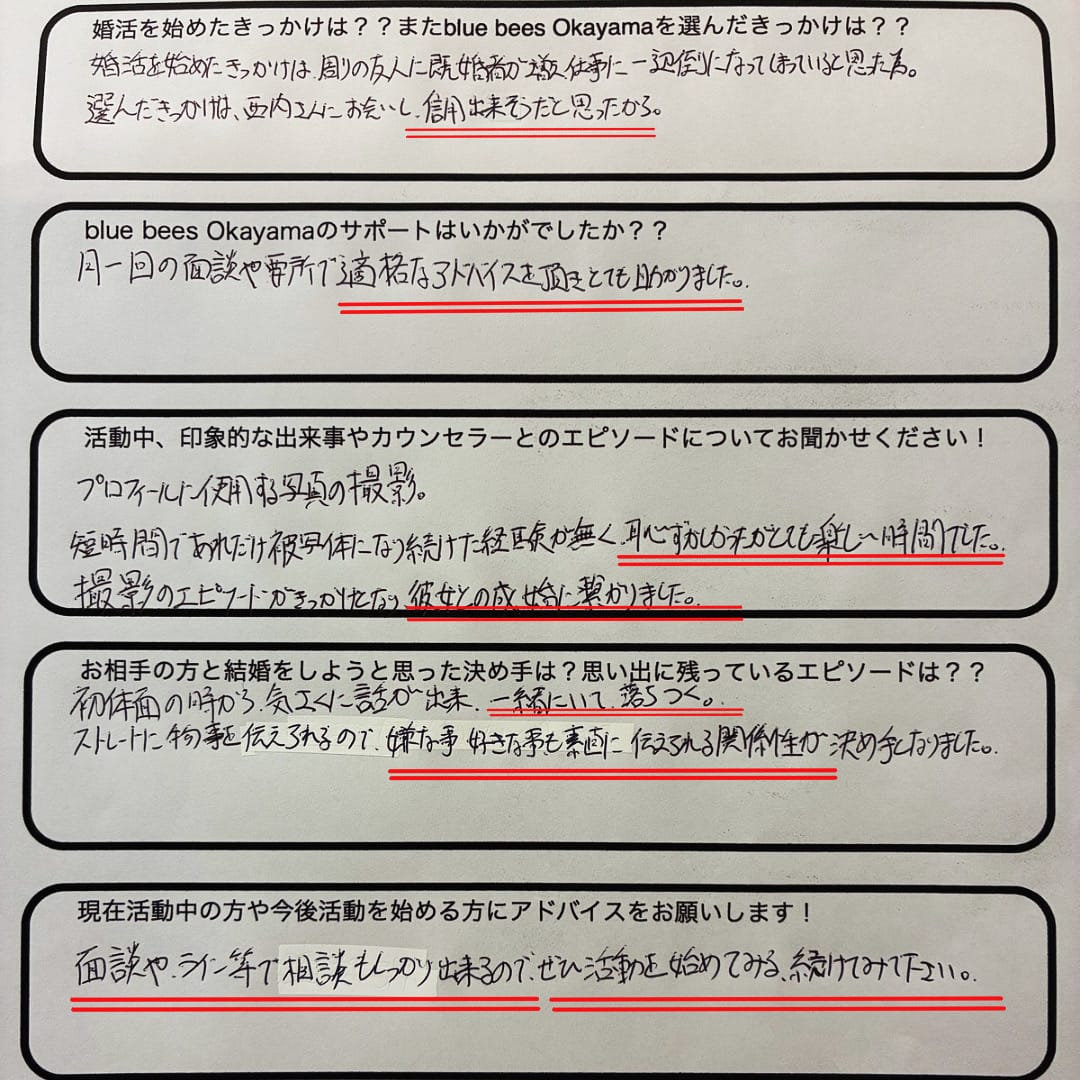 婚活を始めたきっかけは？？またblue bees Okayamaを選んだきっかけは？？
婚活を始めたきっかけは、周りの友人に既婚者が増え、仕事に一辺倒になってしまっていると思った為。
選んだきっかけは、西内さんにお会いし、信用出来そうだと思ったから。
blue bees Okayamaのサポートはいかがでしたか？？
月一回の面談や要所で適格なアドバイスを頂きとても助かりました。
活動中、印象的な出来事やカウンセラーとのエピソードについてお聞かせください！
プロフィールに使用する写真の撮影。
短時間であれだけ被写体になり続けた経験が無く、恥ずかしかったがとても楽しい時間でした。
撮影のエピソードがきっかけとなり、彼女との成婚に繋がりました。
お相手の方と結婚をしようと思った決め手は？思い出に残っているエピソードは？？
初体面の時から、気さくに話が出来、一緒にいて、落ちつく。
ストレートに物事を伝えられるので、嫌な事 好きな事も素直に伝えられる関係性が決め手となりました。
現在活動中の方や今後活動を始める方にアドバイスをお願いします！
面談や、ライン等で相談もしっかり出来るので、ぜひ活動を始めてみる、続けてみて下さい。